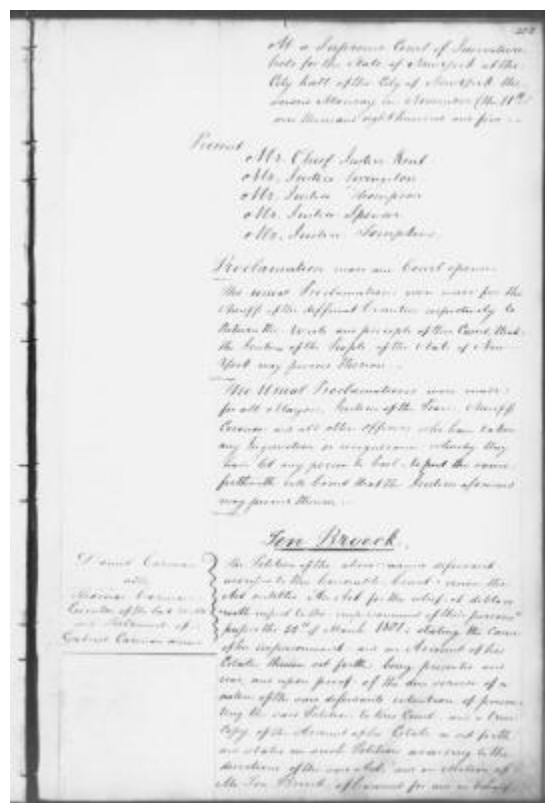 At a Supreme Court of Judicature
held for the State of New York at the
City Hall of the City of New York the
second Monday in November (the 11th)
one thousand eight hundred and five
Present
Mr. Chief Justice Kent
Mr. Justice Livingston
Mr. Justice Thompson
Mr. Justice Spencer
Mr. Justice Tompkins
Proclamation made and Court opened
The usual Proclamations were made for the
Sheriffs of the different Counties respectively to
Return the Writs and precepts of this Court that
the Justices of the People of the State of New
York may proceed thereon
The Usual Proclamations were made
for all Mayors, Justices of the Peace, Sheriffs
Coroners and all other Officers who have taken
any Inquisition or recognizance whereby they
have let any person to bail to put the same
forthwith into Court that the Justices aforesaid
may proceed thereon
Ten Broeck
Daniel Carman
adsm
Thomas Carman
Executor of the last Will
and Testament of
Gabriel Carman
the Petition of the above named defendant
to this honorable Court under the
Act entitled An Act for the relief of debtors
with respect to the imprisonment of their persons
passed the of March 1801, stating the Cause
of his imprisonment and an Account of his
Estate therein set forth being presented and
read, and upon proof of the due service of a
notice of the said defendants intention of presen-
ting the said Petition to this Court and a true
Copy of the Account of his Estate as set forth
and stated in such Petition according to the
directions of the said Act, and on motion of
Mr. Ten Broeck of Counsel for and on behalf